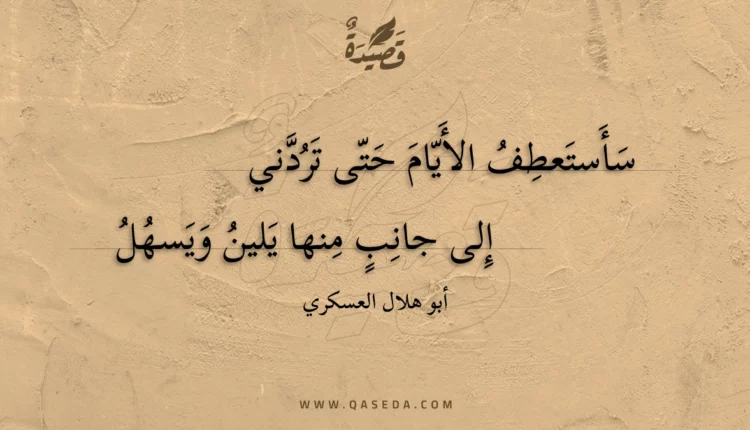 قَصِيدَةٌ
سَأَستَعطِفُ الأَيّامَ حَتّى تَرُدَّني
إِلى جانِبٍ مِنها يَلينُ وَيَسهُلُ
أبو هلال العسكري
WWW.QASEDA.COM